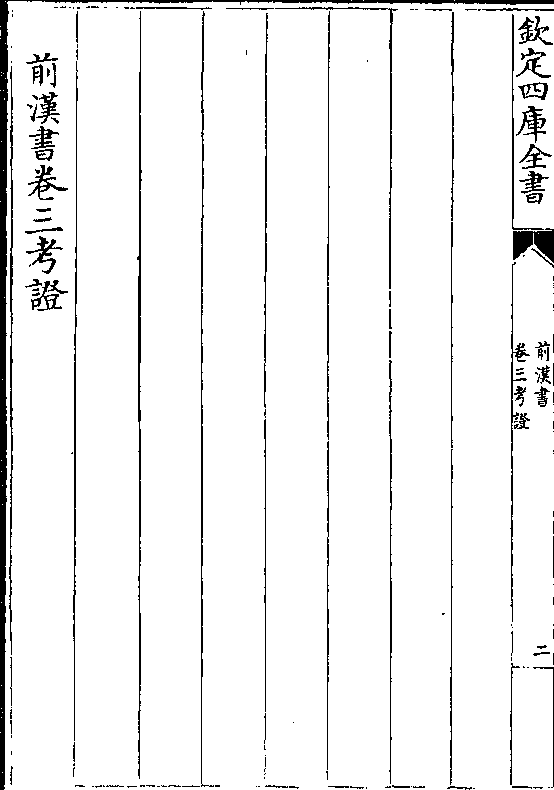 欽定四庫全書
前漢書
卷三考證
二
前漢書卷三考證